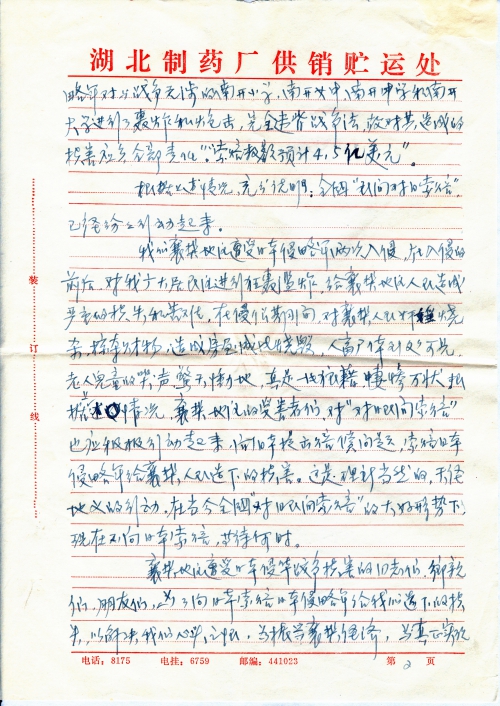 湖北制药厂供销贮运处
略军对与战争无涉的南开小学、南开女中、南开中学和南开
大学进行了轰炸和炮击，完全违背战争法，故对其造成的
损害应负全部责任"。索赔款预计4.5亿美元"。
根据以上情况，充分说明：全国"民间对日索赔"
已经纷纷行动起来。
我们襄樊地区遭受日军侵略军两次入侵，在入侵的
前后，对我广大居民区进行狂轰滥炸，给襄樊地区人民造成
严重的损失和苦难，在侵占期间，对襄樊人民奸 烧
杀，掠夺财物，造成房屋成
老人儿童的哭声惊天恸地，真是一片狼籍，凄惨万状，根
据 情况，襄樊地区的受害者们，对"对日民间索赔"
也应积极行动起来，向日军提出赔偿问题，索赔日军
侵略军给襄樊人民造下的损害。这是理所当然的，天经
地义的行动，在当今全国"对日民间索赔"的大好形势下，
现在不向日军索赔，苦待何时。
襄樊地区遭受日军侵华战争损害的同志们，乡亲
们，朋友们，为了向日军索赔日军侵略军给我们造下的损
失，以解决我们心头之恨，为振兴襄樊经济，为真正实现
装
订
线
电话：8175 电挂：6759 邮编：441023 第 2 页